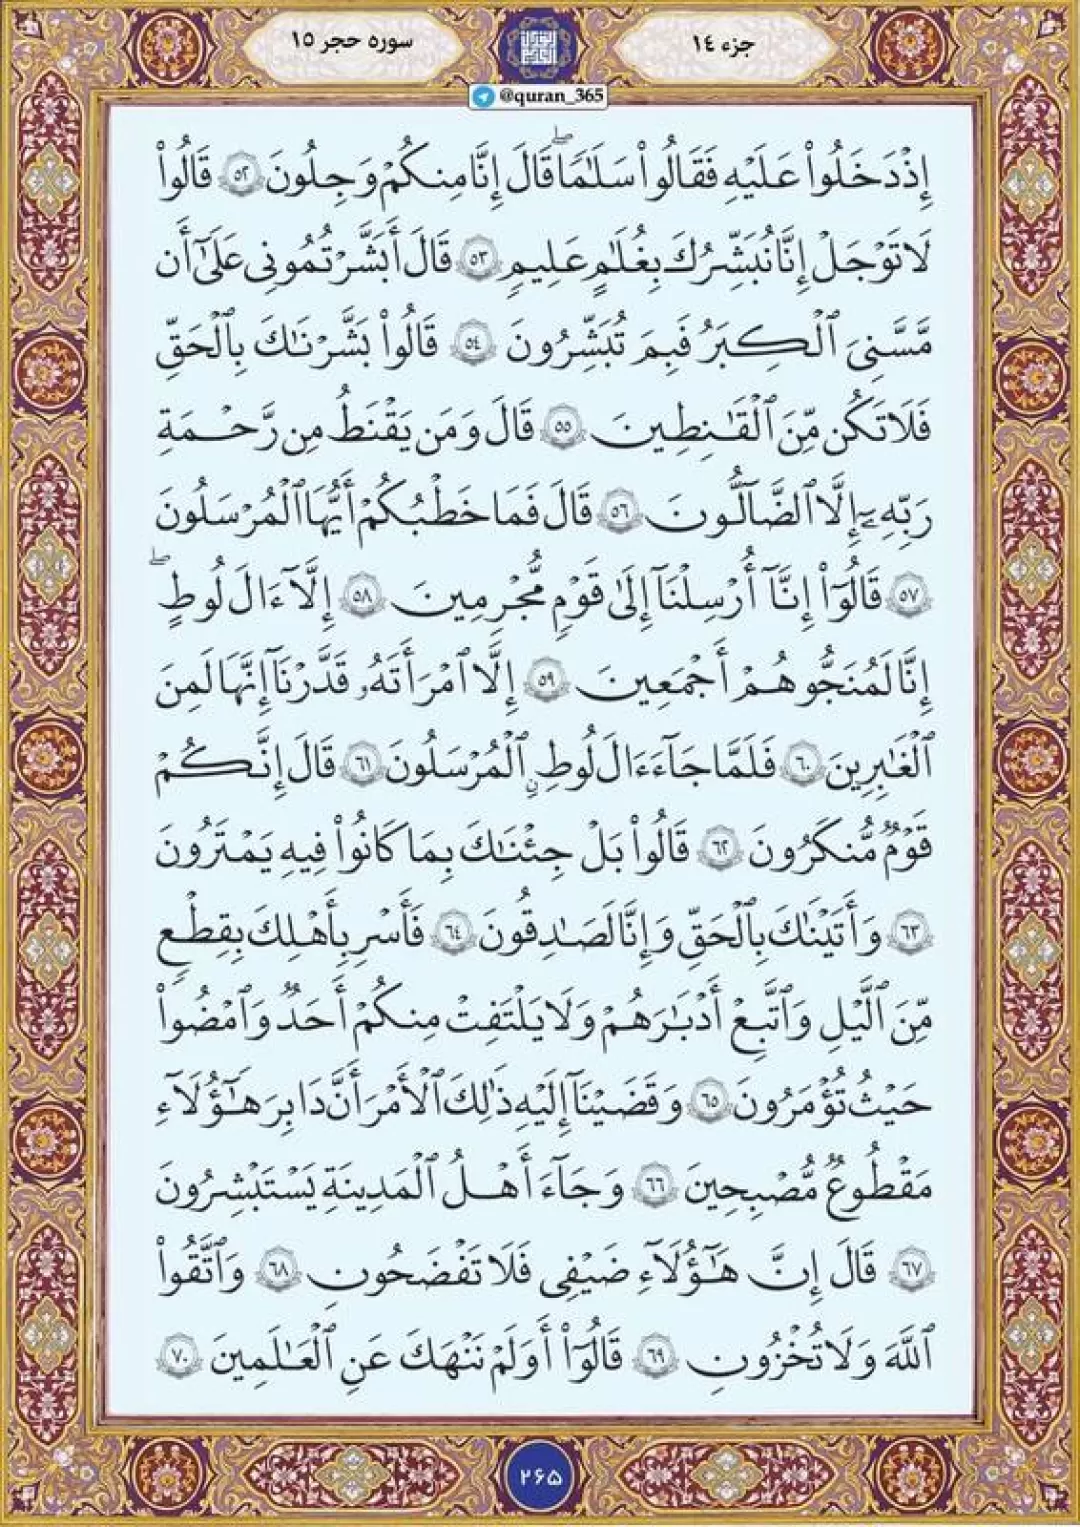 سوره حجر ۱۵
جزء ۱٤
@quran_365
إِذْ دَخَلُوا۟ عَلَيْهِ فَقَالُوا۟ سَلَـٰمًا ۖ قَالَ إِنَّا مِنكُمْ وَجِلُونَ ٥٢ قَالُوا۟
لَا تَوْجَلْ إِنَّا نُبَشِّرُكَ بِغُلَـٰمٍ عَلِيمٍ ٥٣ قَالَ أَبَشَّرْتُمُونِى عَلَىٰٓ أَن
مَّسَّنِىَ ٱلْكِبَرُ فَبِمَ تُبَشِّرُونَ ٥٤ قَالُوا۟ بَشَّرْنَـٰكَ بِٱلْحَقِّ
فَلَا تَكُن مِّنَ ٱلْقَـٰنِطِينَ ٥٥ قَالَ وَمَن يَقْنَطُ مِن رَّحْمَةِ
رَبِّهِۦٓ إِلَّا ٱلضَّآلُّونَ ٥٦ قَالَ فَمَا خَطْبُكُمْ أَيُّهَا ٱلْمُرْسَلُونَ
٥٧ قَالُوٓا۟ إِنَّآ أُرْسِلْنَآ إِلَىٰ قَوْمٍ مُّجْرِمِينَ ٥٨ إِلَّآ ءَالَ لُوطٍ ۖ
إِنَّا لَمُنَجُّوهُمْ أَجْمَعِينَ ٥٩ إِلَّا ٱمْرَأَتَهُۥ قَدَّرْنَآ إِنَّهَا لَمِنَ
ٱلْغَـٰبِرِينَ ٦٠ فَلَمَّا جَآءَ ءَالَ لُوطٍ ٱلْمُرْسَلُونَ ٦١ قَالَ إِنَّكُمْ
قَوْمٌ مُّنكَرُونَ ٦٢ قَالُوا۟ بَلْ جِئْنَـٰكَ بِمَا كَانُوا۟ فِيهِ يَمْتَرُونَ
٦٣ وَأَتَيْنَـٰكَ بِٱلْحَقِّ وَإِنَّا لَصَـٰدِقُونَ ٦٤ فَأَسْرِ بِأَهْلِكَ بِقِطْعٍ
مِّنَ ٱلَّيْلِ وَٱتَّبِعْ أَدْبَـٰرَهُمْ وَلَا يَلْتَفِتْ مِنكُمْ أَحَدٌ وَٱمْضُوا۟
حَيْثُ تُؤْمَرُونَ ٦٥ وَقَضَيْنَآ إِلَيْهِ ذَٰلِكَ ٱلْأَمْرَ أَنَّ دَابِرَ هَـٰٓؤُلَآءِ
مَقْطُوعٌ مُّصْبِحِينَ ٦٦ وَجَآءَ أَهْلُ ٱلْمَدِينَةِ يَسْتَبْشِرُونَ
٦٧ قَالَ إِنَّ هَـٰٓؤُلَآءِ ضَيْفِى فَلَا تَفْضَحُونِ ٦٨ وَٱتَّقُوا۟
ٱللَّهَ وَلَا تُخْزُونِ ٦٩ قَالُوٓا۟ أَوَلَمْ نَنْهَكَ عَنِ ٱلْعَـٰلَمِينَ ٧٠
۲۶۵